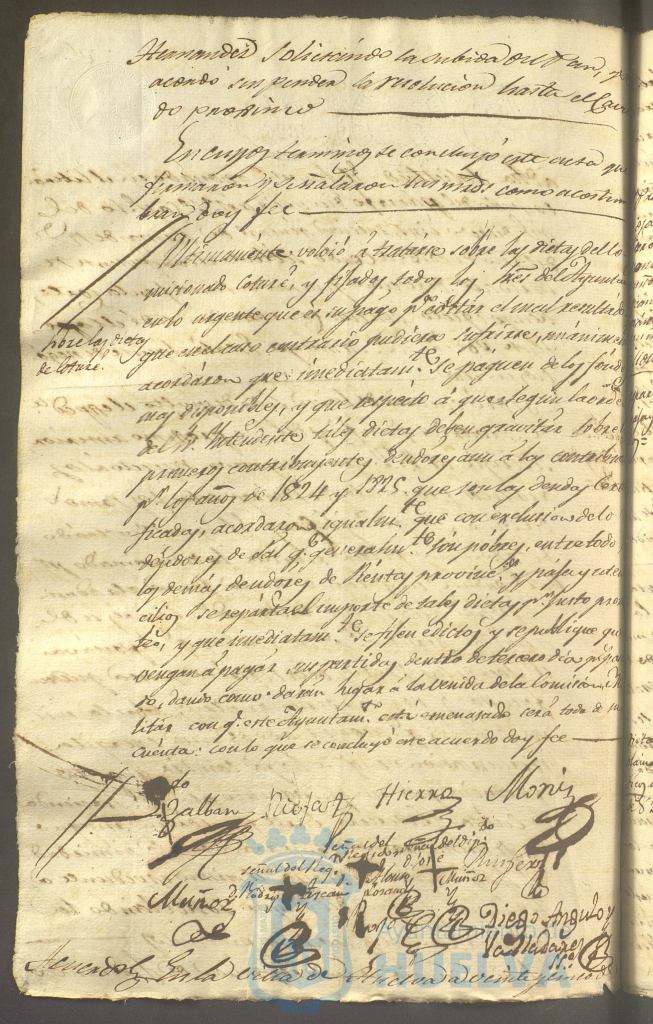 Hernandez solicitando la subida del Pan, se
acordó suspender la resolucion hasta el Cavil
do proximo
En cuyos terminos se concluyó este acta que
firmaron y señalaron sus mrds. como acostum
bran doy fee
Ultimamente volvió á tratarse sobre las dietas del Co
micionado Coture, y fijados todos los Sres del Ayuntam
en lo urgente que es su pago pa. evitar el mal resultado
que en el caso contrario pudiera sufrirse, unánimem
sobre las dietas
de Coture.
acordáron que inmediatamte. se páguen de los fondos
mas disponibles, y que respecto á que segun la orden
del Sr. Yntendente tales dietas deben gravitar sobre
primeros contribuyentes deudores aun á las contribu
pr. los años de 1824 y 1825, que son las deudas
ficadas, acordaron igualmte. que con exclusion de lo
deudores de Sal qe. generalmte. són póbres, entre todos
los demás deudores de Réntas provins. y paja y uten
cilios se repárta el importe de tales dietas pr. justo prorra
téo, y que inmediatamte. se fijen edictos y se publique que
vengan á pagar sus partidas dentro de tercero dia
do, dando como darán lugar á la venida de la Comision Mi
litár con qe. este Ayuntamto. está amenazado será todo de su
cuenta: con lo que se concluyó este acuerdo doy fee
Balban Hierro Moriz
Señal del Señal del Dip.
Señal del Reg. Regidor D. José Quintero
D. Pedro Muñoz
Muñoz
Diego Angulo y
Valladares
Acuerdo En la villa de Huelva a veinte y cinco de
HUELVA